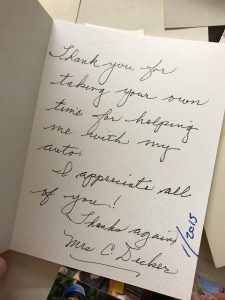 Thank you for
taking your own
time for helping
me with my
auto.
I appreciate all
of you!
Thanks again,
Mrs C. Decker
1/2015